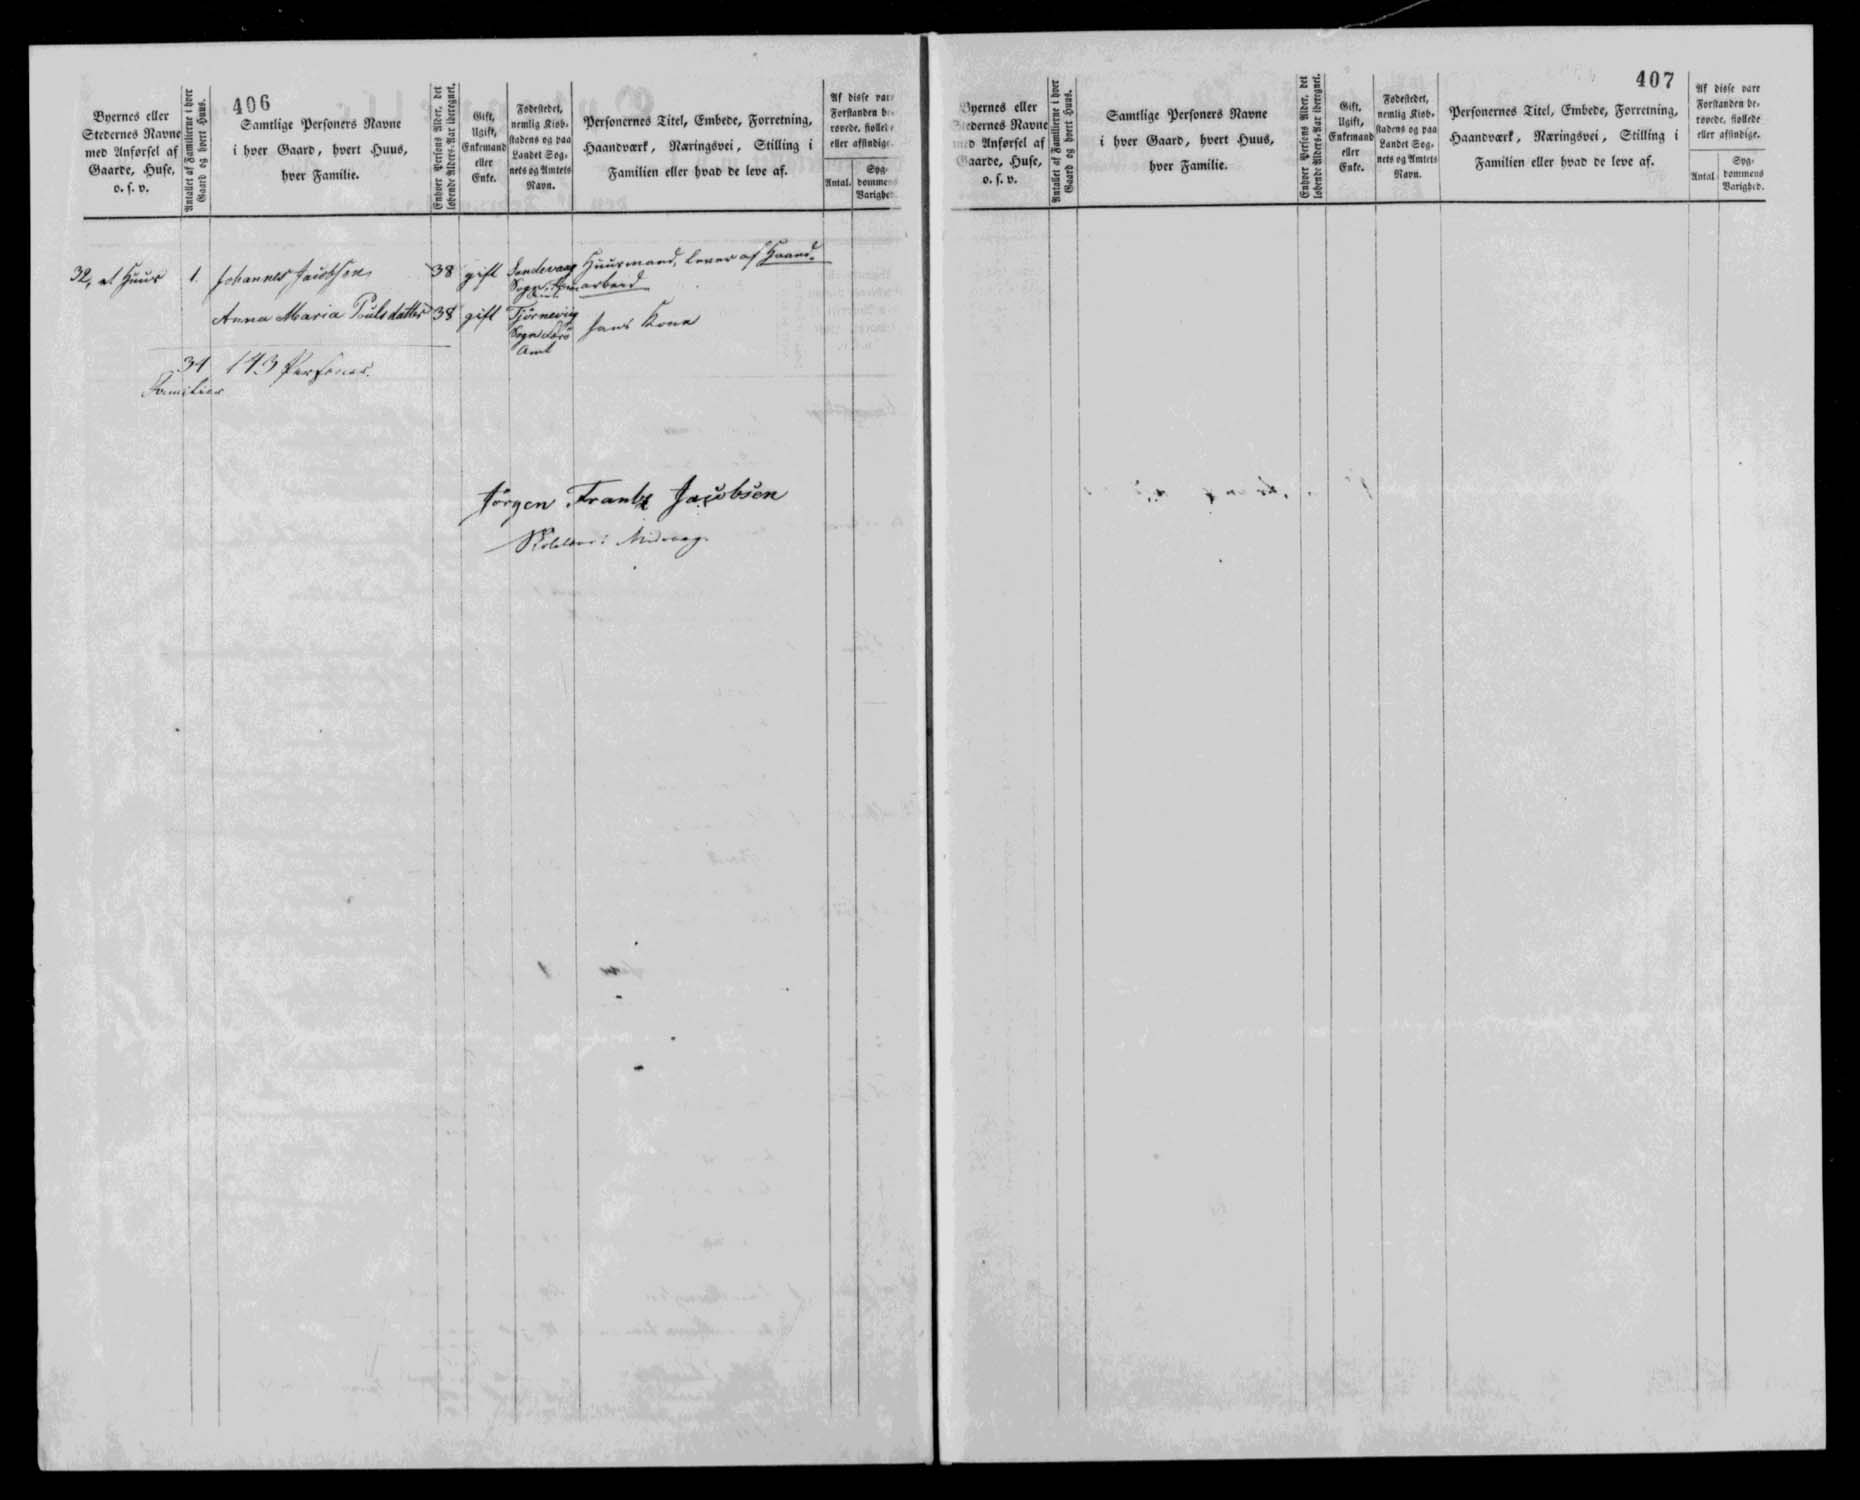 406
Byernes eller
Stedernes Navne
med Anførsel af
Gaarde, Huse,
o. s. v.
Antallet af Familierne i hver
Gaard og hvert Huus.
Samtlige Personers Navne
i hver Gaard, hvert Huus,
hver Familie.
Enhver Persons Alder, det
løbende Alders-Aar iberegnet.
Gift,
Ugift,
Enkemand
eller
Enke.
Fødestedet,
nemlig Kiøb-
stadens og paa
Landet Sog-
nets og Amtets
Navn.
Personernes Titel, Embede, Forretning,
Haandværk, Næringsvei, Stilling i
Familien eller hvad de leve af.
Af disse vare
Forstanden be-
røvede, fiollede
eller afsindige.
Antal.
Syg-
dommens
Varighed.
32, et Huus 1. Johannes Jacobsen 38 gift Sandevaag Huusmand, lever af Haand-
Sogn arbeid
Anna Maria Poulsdatter 38 gift Tjørnevig hans Kone
Sogn Færø
Amt
34 143 Personer.
Familier
Jørgen Frantz Jacobsen
Midvaag
407
Byernes eller
Stedernes Navne
med Anførsel af
Gaarde, Huse,
o. s. v.
Antallet af Familierne i hver
Gaard og hvert Huus.
Samtlige Personers Navne
i hver Gaard, hvert Huus,
hver Familie.
Enhver Persons Alder, det
løbende Alders-Aar iberegnet.
Gift,
Ugift,
Enkemand
eller
Enke.
Fødestedet,
nemlig Kiøb-
stadens og paa
Landet Sog-
nets og Amtets
Navn.
Personernes Titel, Embede, Forretning,
Haandværk, Næringsvei, Stilling i
Familien eller hvad de leve af.
Af disse vare
Forstanden be-
røvede, fiollede
eller afsindige.
Antal
Syg-
dommens
Varighed.